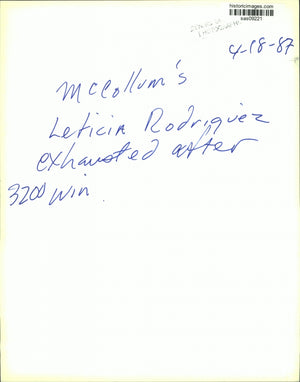 historicimages.com
sas09221
4-18-87
McCollum's
Leticia Rodriquez
exhausted after
3200 win